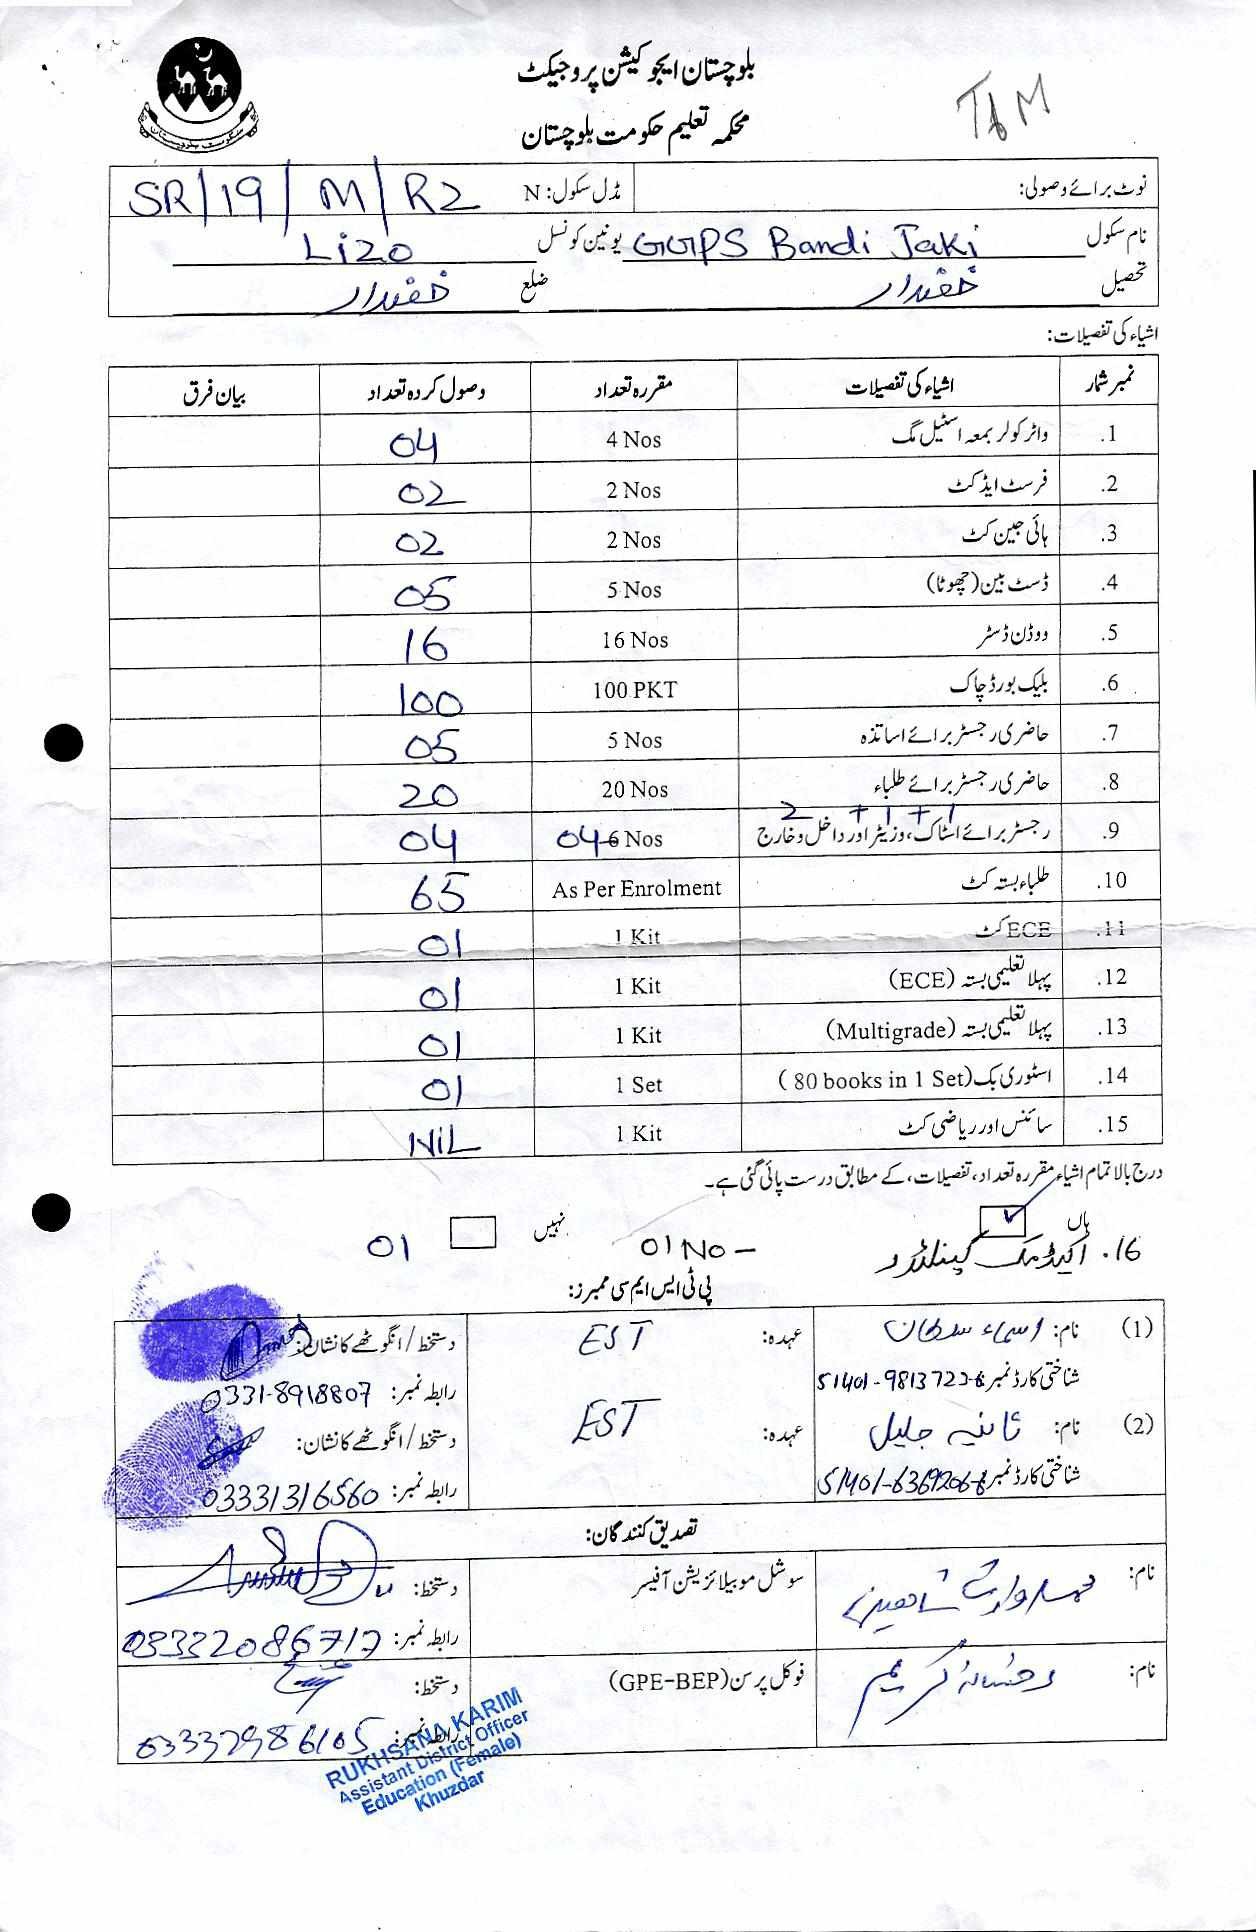 بلوچستان ایجوکیشن پروجیکٹ
محکمہ تعلیم حکومت بلوچستان
T&M
نوٹ برائے وصولی: مڈل سکول: N SR/19/M/R2
نام سکول GGPS Bandi Jaki یونین کونسل Lizo
تحصیل خضدار ضلع خضدار
اشیاء کی تفصیلات:
نمبر شمار اشیاء کی تفصیلات مقررہ تعداد وصول کردہ تعداد بیان فرق
.1 واٹر کولر بمعہ اسٹیل مگ 4 Nos 04
.2 فرسٹ ایڈ کٹ 2 Nos 02
.3 ہائی جین کٹ 2 Nos 02
.4 ڈسٹ بین (چھوٹا) 5 Nos 05
.5 ووڈن ڈسٹر 16 Nos 16
.6 بلیک بورڈ چاک 100 PKT 100
.7 حاضری رجسٹر برائے اساتذہ 5 Nos 05
.8 حاضری رجسٹر برائے طلباء 20 Nos 20
2 + 1 + 1
.9 رجسٹر برائے اسٹاک، وزیٹر اور داخل و خارج 04 6 Nos 04
.10 طلباء بستہ کٹ As Per Enrolment 65
.11 ECE کٹ 1 Kit 01
.12 پہلا تعلیمی بستہ (ECE) 1 Kit 01
.13 پہلا تعلیمی بستہ (Multigrade) 1 Kit 01
.14 اسٹوری بک (80 books in 1 Set) 1 Set 01
.15 سائنس اور ریاضی کٹ 1 Kit NiL
درج بالا تمام اشیاء مقررہ تعداد، تفصیلات، کے مطابق درست پائی گئی ہے۔
ہاں نہیں
.16 اکیڈمک کیلنڈر 01 No - 01
پی ٹی ایس ایم سی ممبرز:
(1) نام: اسماء سلطان عہدہ: EST دستخط/انگوٹھے کا نشان:
شناختی کارڈ نمبر 51401-9813722-6 رابطہ نمبر: 0331-8918807
(2) نام: ثانیہ جلیل عہدہ: EST دستخط/انگوٹھے کا نشان:
شناختی کارڈ نمبر رابطہ نمبر: 03331316560
تصدیق کنندگان:
نام: سوشل موبیلائزیشن آفیسر دستخط:
رابطہ نمبر: 03332086717
نام: رخسانہ کریم فوکل پرسن (GPE-BEP) دستخط:
رابطہ نمبر: 03337986105
RUKHSANA KARIM
Assistant District Officer
Education (Female)
Khuzdar